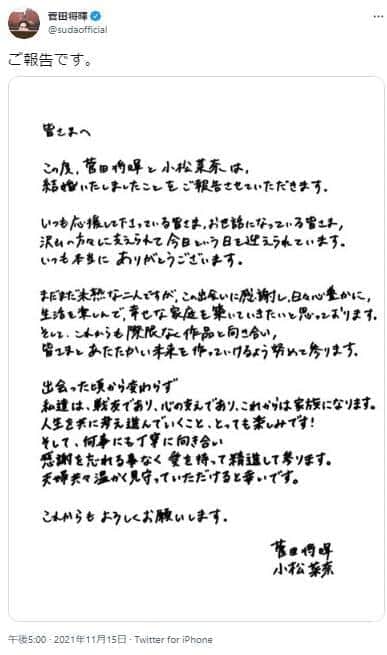 菅田将暉
@sudaofficial
ご報告です。
皆さまへ
この度、菅田将暉と小松菜奈は、
結婚いたしましたことをご報告させていただきます。
いつも応援して下さっている皆さま、お世話になっている皆さま、
沢山の方々に支えられて今日という日を迎えられています。
いつも本当に ありがとうございます。
まだまだ未熟な二人ですが、この出会いに感謝し、日々心豊かに、
生活を楽しんで、幸せな家庭を築いていきたいと思っております。
そして、これからも際限なく作品と向き合い、
皆さまとあたたかい未来を作っていけるよう努めて参ります。
出会った頃から変わらず
私達は、戦友であり、心の支えであり、これからは家族になります。
人生を共に考え進んでいくこと、とっても楽しみです!
そして、何事にも丁寧に向き合い
感謝を忘れる事なく 愛を持って精進して参ります。
夫婦共々温かく見守っていただけると幸いです。
これからも よろしくお願いします。
菅田将暉
小松菜奈
午後5:00 · 2021年11月15日 · Twitter for iPhone